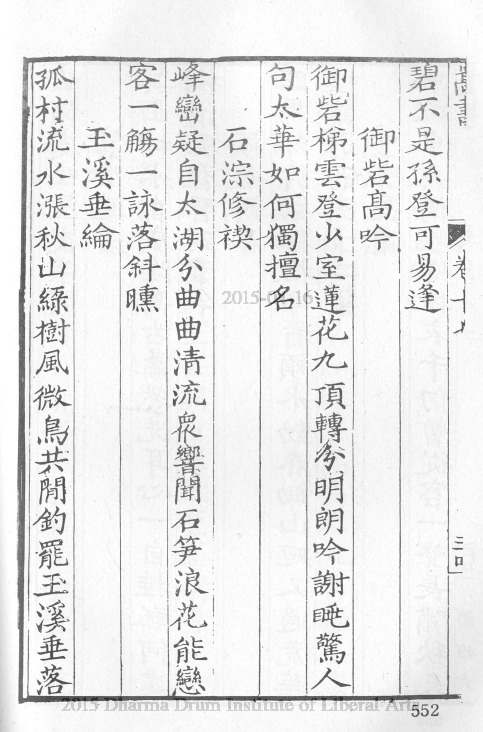 嵩書
卷十九
碧不是孫登可易逢
御砦高吟
御砦梯雲登少室蓮花九頂轉分明朗吟謝眺驚人
句太華如何獨擅名
石淙修禊
峰巒疑自太湖分曲曲清流眾響聞石笋浪花能戀
客一觴一詠落斜曛
玉溪垂綸
孤村流水漲秋山綠樹風微鳥共閒釣罷玉溪垂落
552
2015 Dharma Drum Institute of Liberal Arts